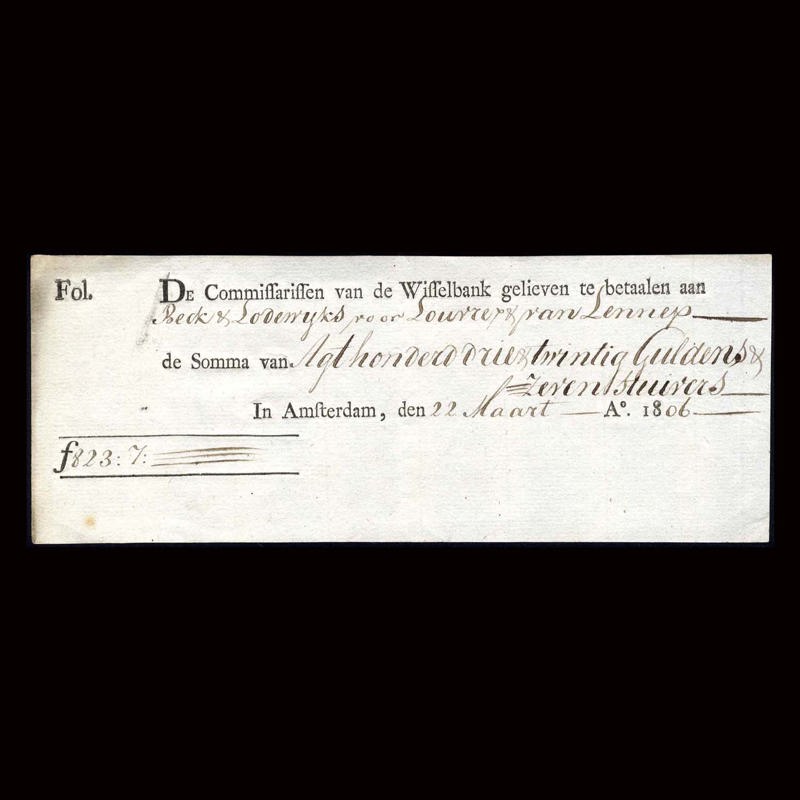 Fol.
DE Commiſſariſſen van de Wiſſelbank gelieven te betaalen aan
Beck & Lodewyks voor Louvrex & van Lennep
de Somma van Agt honderd drie & twintig Guldens &
Zeven Stuivers
In Amſterdam, den 22 Maart Aº. 1806
ƒ823:7: